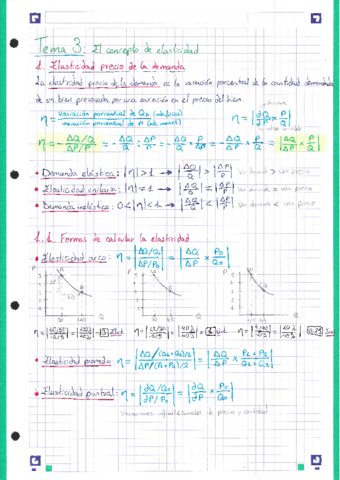 Tema 3: El concepto de elasticidad
1. Elasticidad precio de la demanda
La elasticidad precio de la demanda es la variación porcentual de la cantidad demandada
de un bien provocada por una variación en el precio del bien.
η = variación porcentual de Qd / variación porcentual de P
η = |∂Q/∂P × P/Q|
η = - ΔQ/Q / ΔP/P = - ΔQ/Q : ΔP/P = - ΔQ/Q × P/ΔP = - ΔQ/ΔP × P/Q = |ΔQ/ΔP × P/Q|
• Demanda elástica: |η| > 1 → |ΔQ/Q| > |ΔP/P| Var demanda > var precio
• Elasticidad unitaria: |η| = 1 → |ΔQ/Q| = |ΔP/P| Var demanda = var precio
• Demanda inelástica: 0 < |η| < 1 → |ΔQ/Q| < |ΔP/P| Var demanda < var precio
1.1. Formas de calcular la elasticidad
• Elasticidad arco: η = |ΔQ/Q0 / ΔP/P0| = |ΔQ/ΔP × P0/Q0|
• Elasticidad promedio: η = |ΔQ/(Q1+Q2)/2 / ΔP/(P1+P2)/2| = |ΔQ/ΔP × P1+P2/Q1+Q2|
• Elasticidad puntual: η = |∂Q/Q0 / ∂P/P0| = |∂Q/∂P × P0/Q0|
Variaciones infinitesimales de precio y cantidad